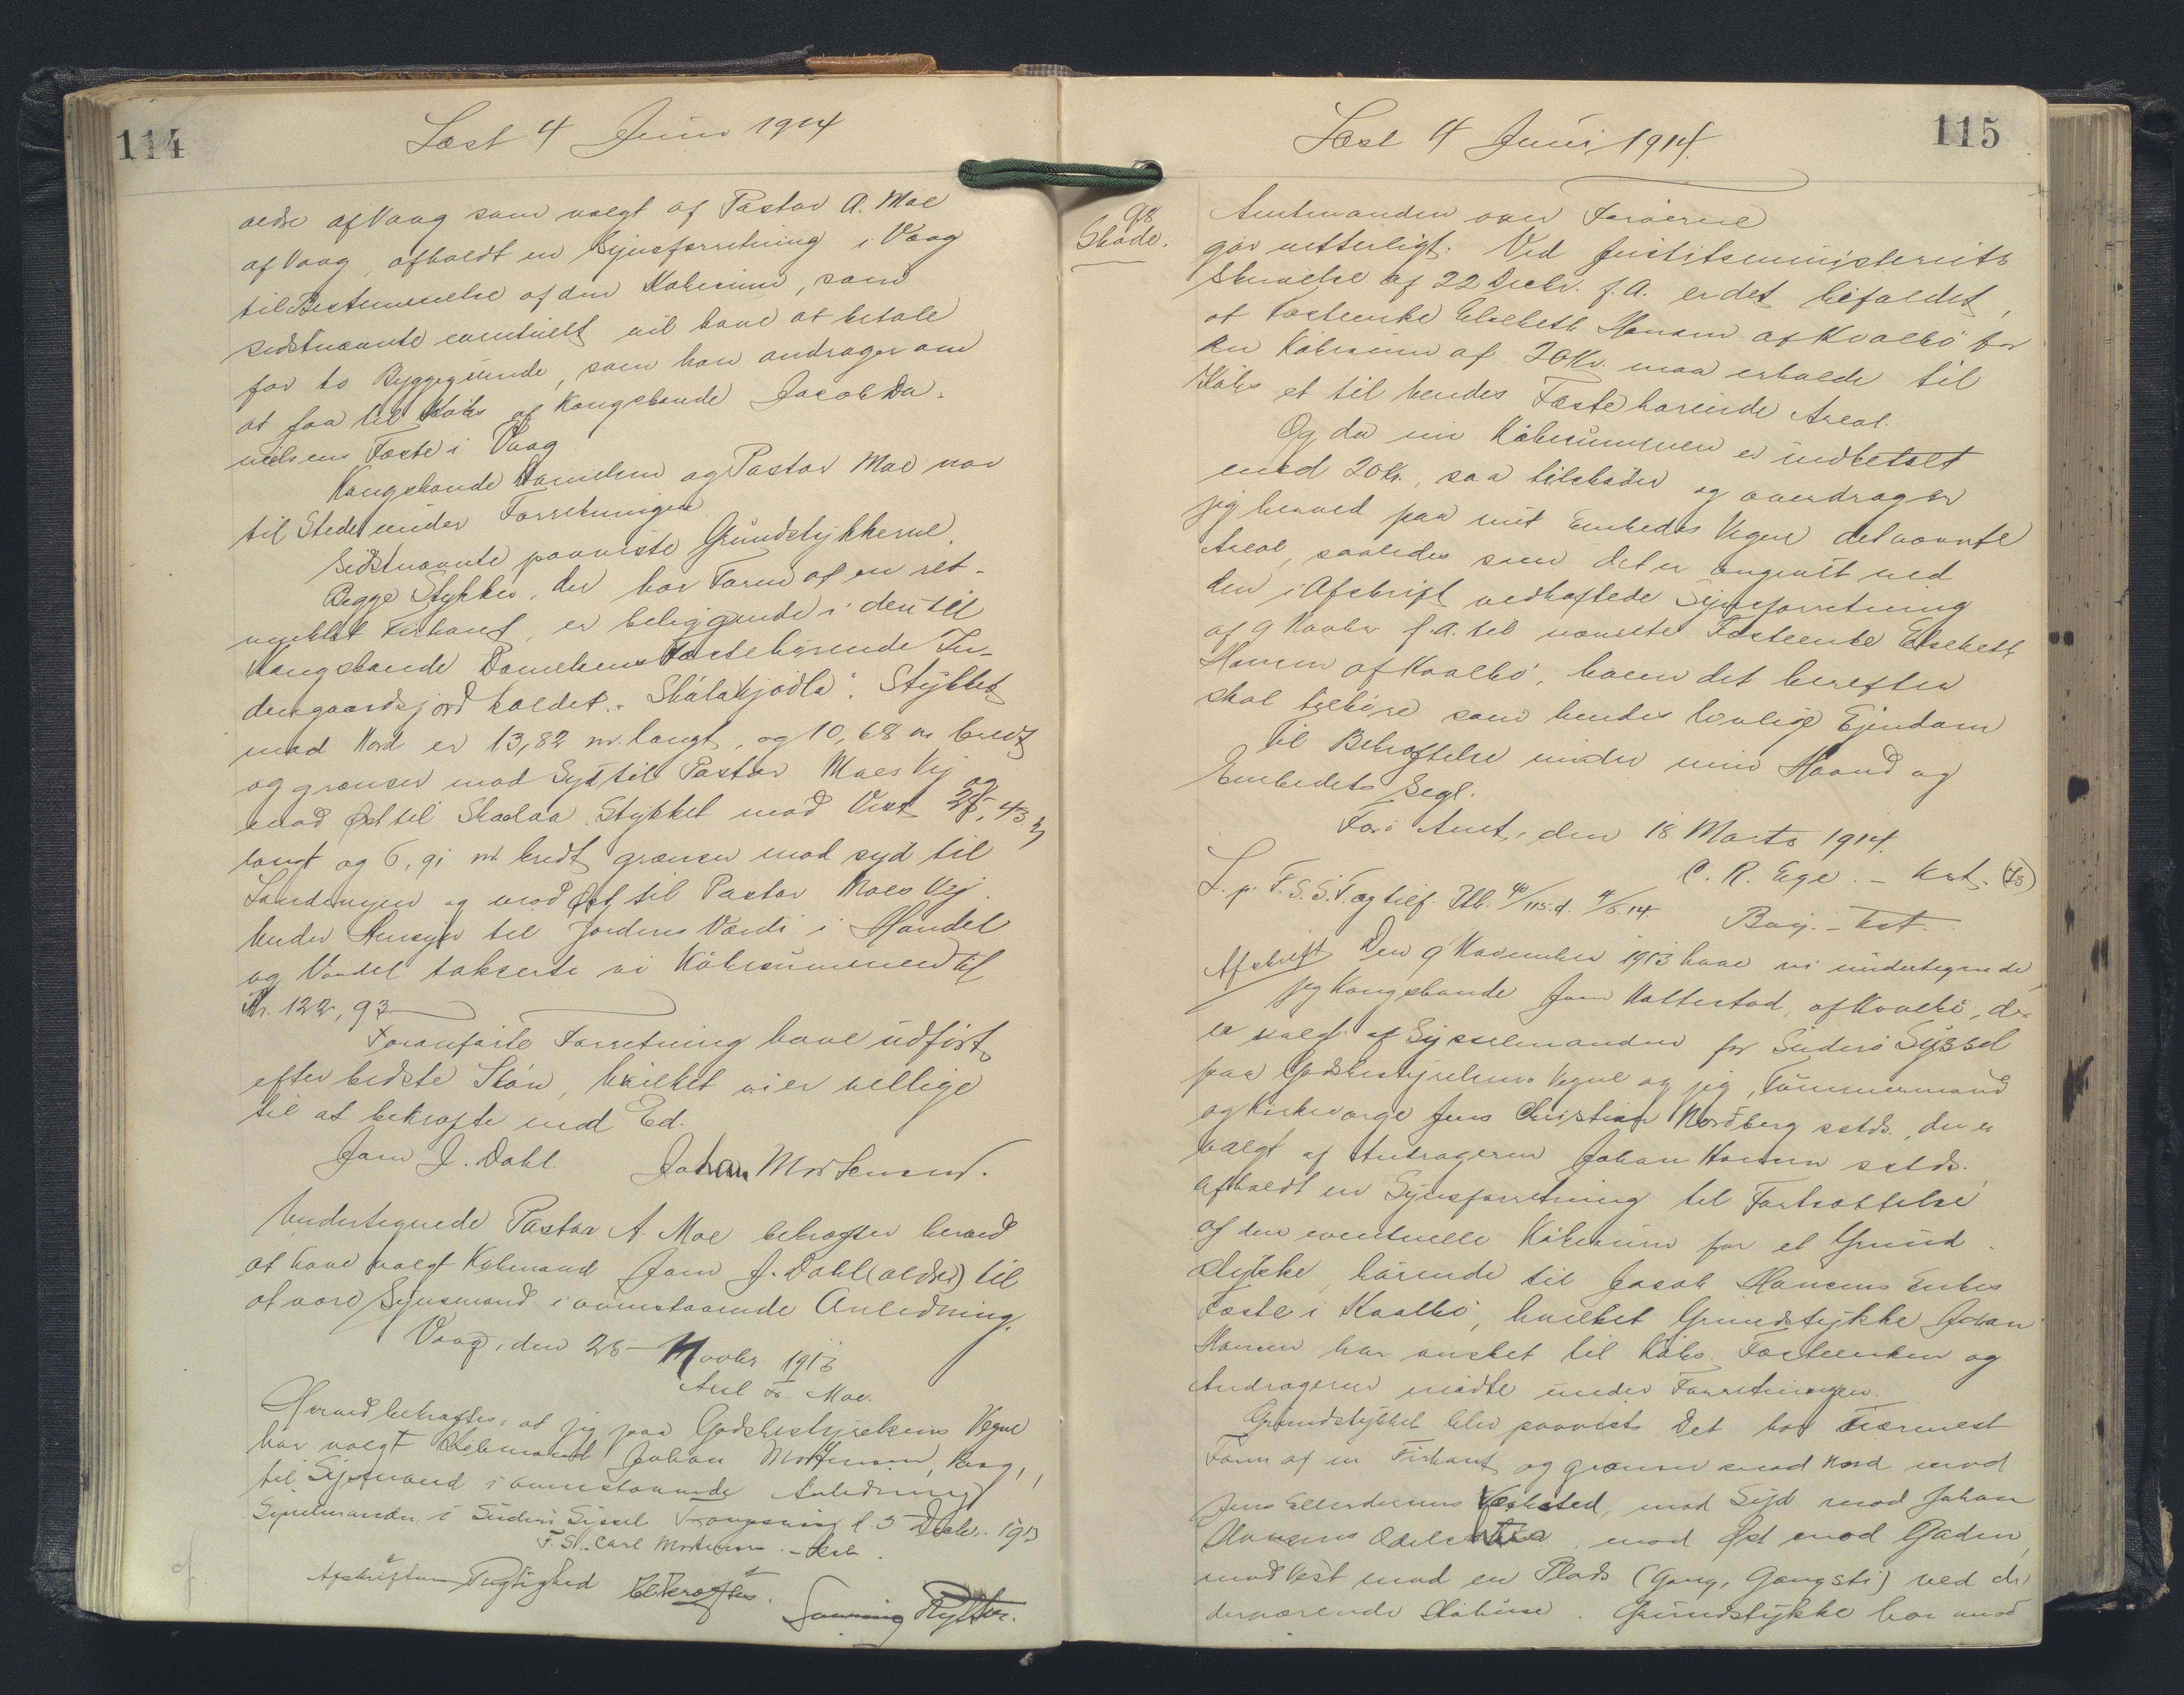 114
Læst 4 Juni 1914
ældre af Vaag som valgt af Pastor A. Moe
af Vaag, afholdt en Synsforretning i Vaag
til Bestemmelse af den Købesum, som
sidstnævnte eventuelt vil have at betale
for to Byggegrunde, som han andrager om
at faa til Købs af Kongsbonde Jacob Da-
nielsens Fæste i Vaag
Kongsbonde Danielsen og Pastor Moe var
til Stede under Forretningen.
Sidstnævnte paaviste Grundstykkerne.
Begge Stykker, der har Form af en ret-
vinklet Firkant, er beliggende i den til
Kongsbonde Danielsens Fæste hørende In-
dengaardsjord kaldet "Skálakjødla". Stykket
mod Nord er 13,82 m. langt, og 10,68 m bredt
og grænser mod Syd til Pastor Moes Vej og
mod Øst til Skaalaa. Stykket mod Vest 25,43 m
langt og 6,91 m bredt grænser mod syd til
Landevejen og mod Øst til Pastor Moes Vej.
Under Hensyn til Jordens Værdi i Handel
og Vandel takserte vi Købesummen til
Kr. 122,93
Foranførte Forretning have udført
efter bedste Skøn, hvilket vi er villige
til at bekræfte med Ed.
Joen J. Dahl. Johan Mortensen.
Undertegnede Pastor A. Moe bekræfter herved
at have valgt Købmand Joen J. Dahl (ældre) til
at være Synsmand i ovenstaaende Anledning.
Vaag, den 25 Novbr. 1913
Axel Fr. Moe.
Herved bekræftes, at jeg paa Godsbestyrelsens Vegne
har valgt Købmand Johan Mortensen, Vaag,
til Synsmand i ovenstaaende Anledning
Sysselmanden i Suderø Syssel Trangisvaag d. 5 Decbr. 1913
F. St. Carl Mortensen. - Kst.
Afskriftens Rigtighed bekræftes.
115
Læst 4 Juni 1914.
98
Skøde.
Amtmanden over Færøerne
gør vitterligt: Ved Justitsministeriets
Skrivelse af 22 Decbr. f.A. er det bifaldet,
at Fæsteenke Elsebeth Hansen af Kvalbø for
en Købesum af 20 Kr. maa erholde til
Købs et til hendes Fæste hørende Areal.
Og da nu Købesummen er indbetalt
med 20 Kr., saa tilskøder og overdrager
jeg herved paa mit Embedes Vegne det nævnte
Areal, saaledes som det er angivet ved
den i Afskrift vedhæftede Synsforretning
af 9 Novbr. f.A. til nævnte Fæsteenke Elsebeth
Hansen af Kvalbø, hvem det herefter
skal tilhøre som hendes lovlige Ejendom
Til Bekræftelse under min Haand og
Embedets Segl.
Færø Amt, den 18 Marts 1914.
C. R. Ege. - Kst. (LS)
Afskrift Den 9 November 1913 have vi undertegnede
jeg Kongsbonde Joen Hattestad, af Kvalbø, der
er valgt af Sysselmanden for Suderø Syssel
paa Godsbestyrelsens Vegne og jeg, Tømmermand
og Kirkeværge Jens Christian Nordberg sstds., der er
valgt af Andrageren Johan Hansen sstds.
afholdt en Synsforretning til Fastsættelse
af den eventuelle Købesum for et Grund-
stykke, hørende til Jacob Hansens Enkes
Fæste i Kvalbø, hvilket Grundstykke Johan
Hansen har ønsket til Købs. Fæsteenken og
Andrageren mødte under Forretningen.
Grundstykket blev paavist. Det har nærmest
Form af en Firkant og grænser mod Nord mod
Jens Ellendersens Værksted, mod Syd mod Johan
Hansens mod Øst mod Gaden,
mod Vest mod en Plads (Gang, Gangsti) ved de
derværende Huse. Grundstykke har mod